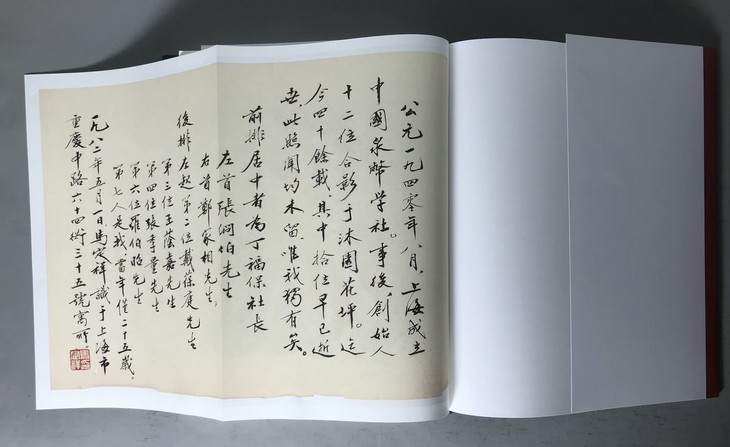 公元一九四零年八月，上海成立
中國泉幣學社。事後，創始人
十二位合影于沐園花坪。迄
今四十餘載，其中拾位早已逝
世，此照聞均未留，惟我獨有矣。
前排居中者為丁福保社長
左首張絅伯先生
右首鄭家相先生，
後排左起第二位戴葆庭先生
第三位王蔭嘉先生
第四位張季量先生
第六位羅伯昭先生
第七人是我，當年僅二十五歲，
一九八二年五月一日馬定祥識于上海市
重慶中路六十四衖三十五號寓所。